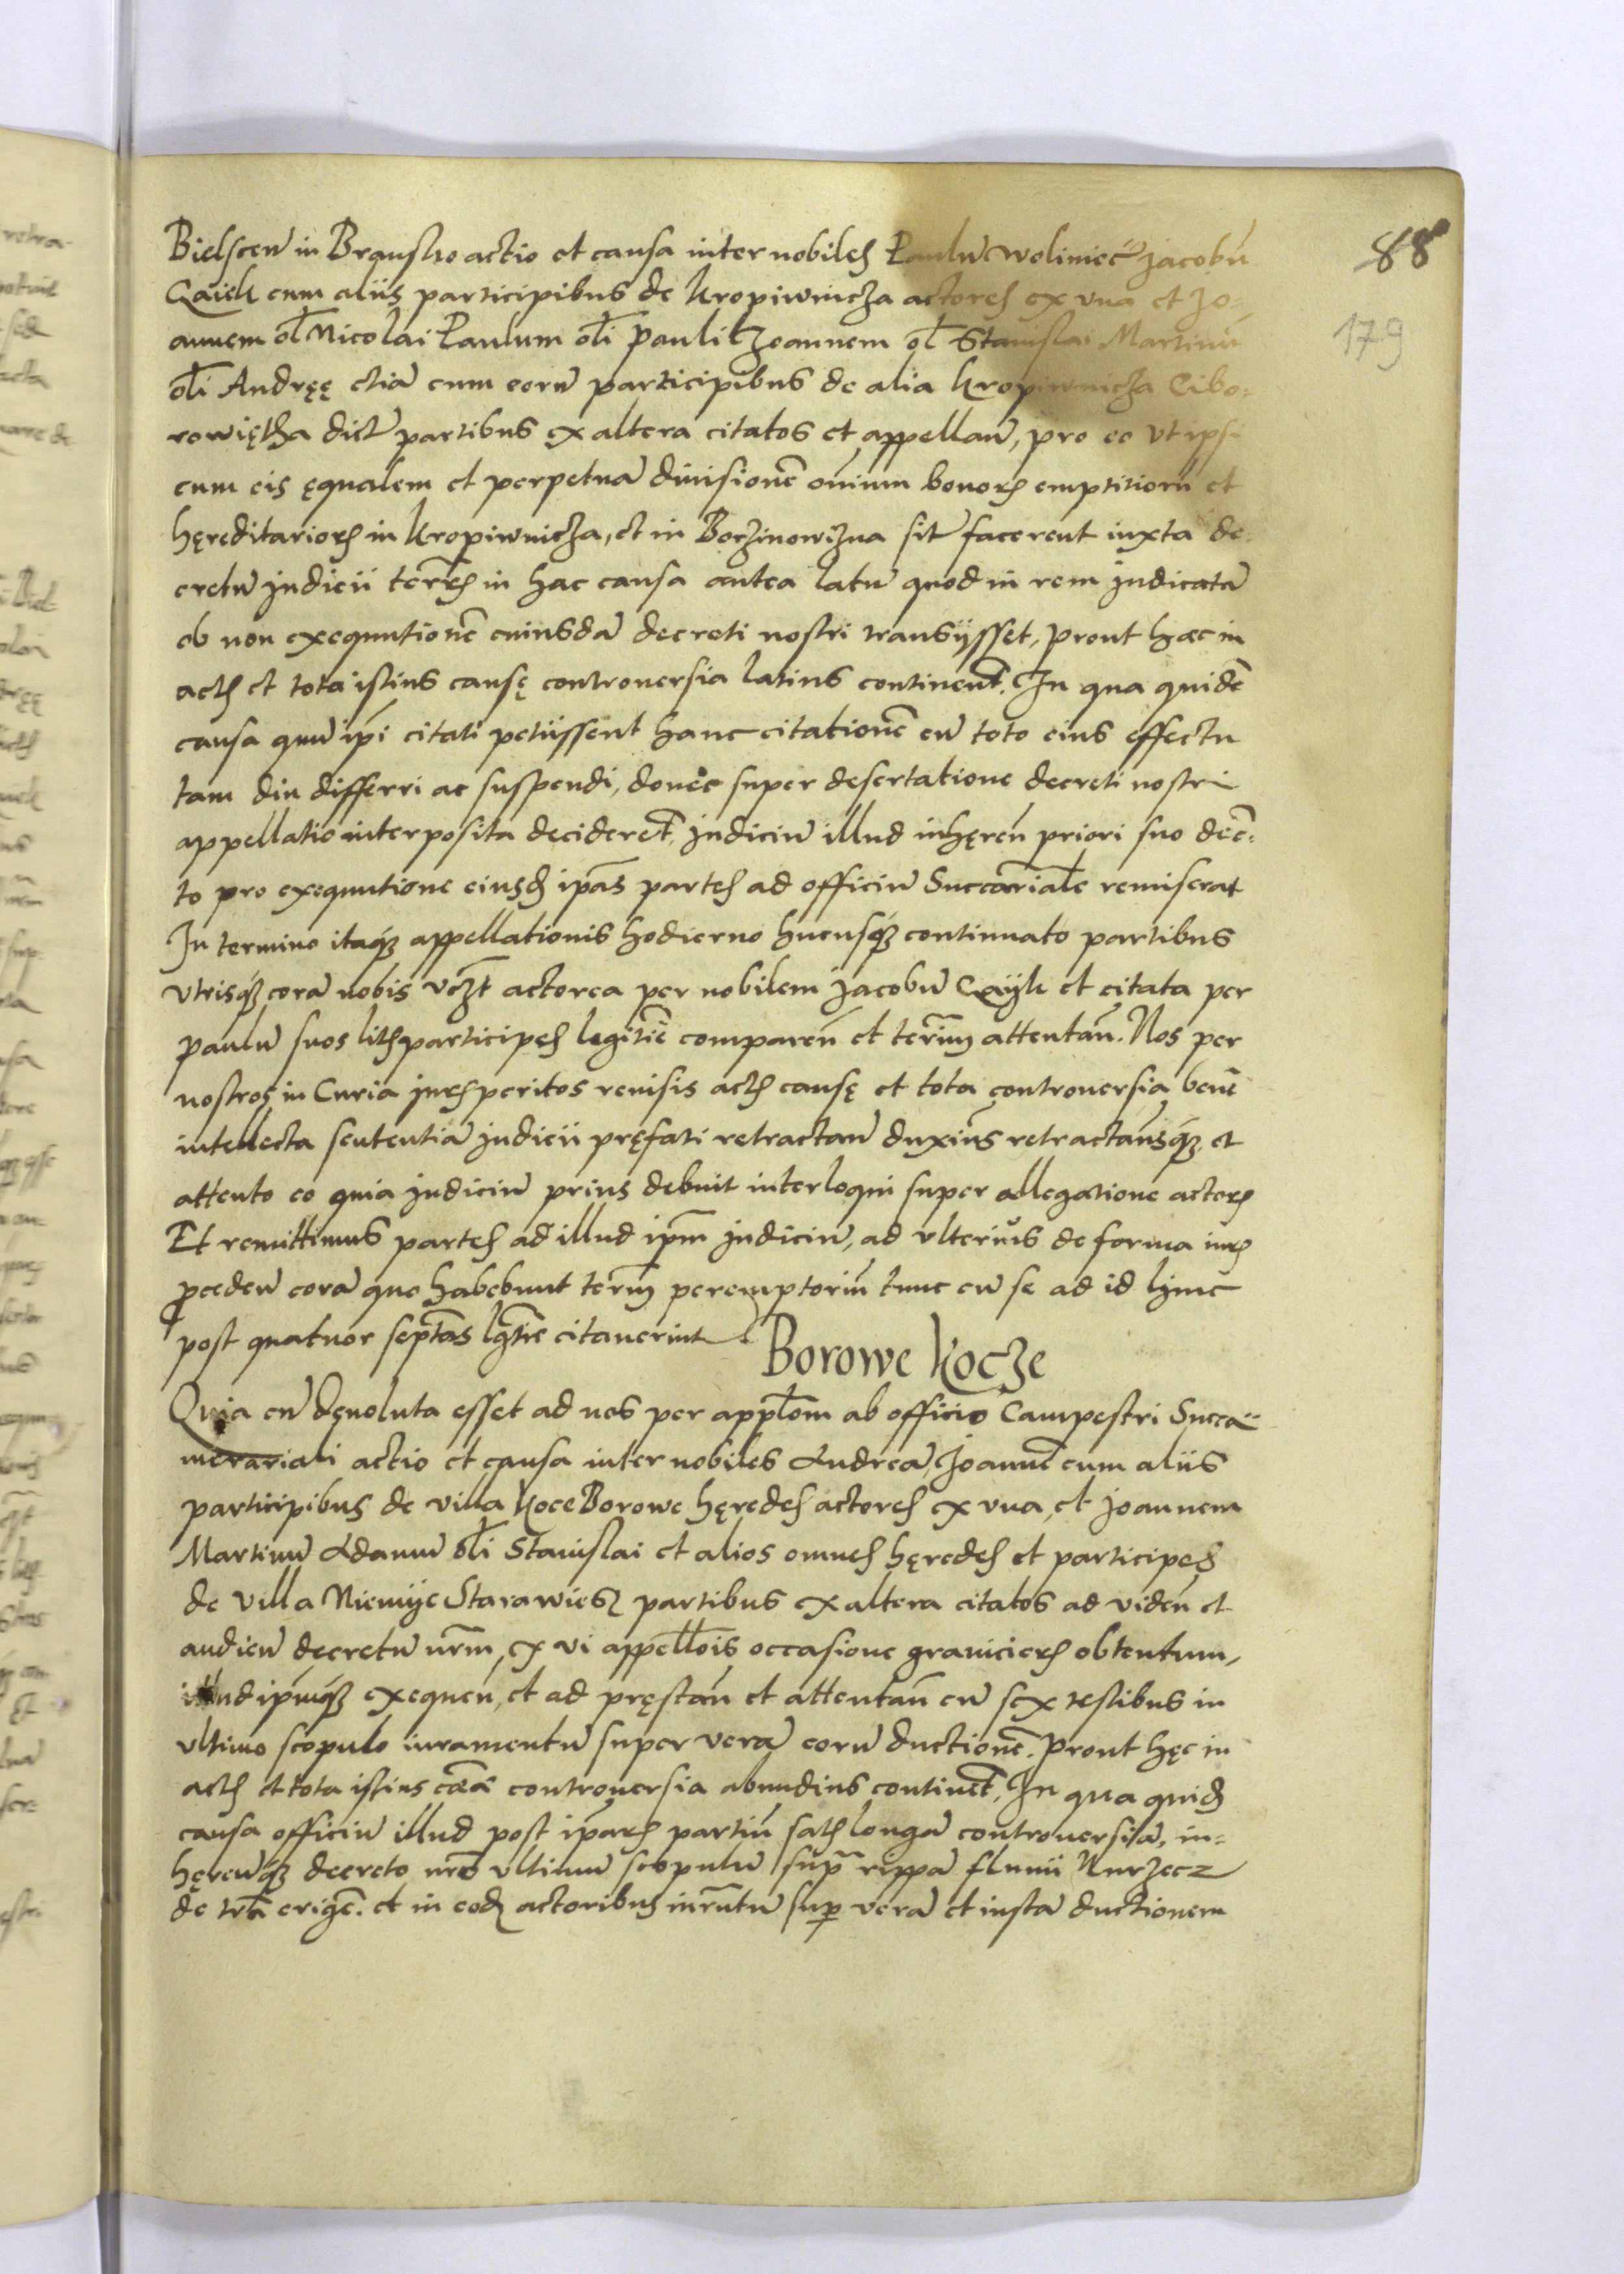 88
179
Bielscen̄ in Braنsko actio et causa inter nobiles Paulū Woliniec Jacobū
Czaick cum aliis participibus de Kropiwnicza actores ex una et Jo-
annem ol̄ Nicolai Paulum oli̅ Pauli Joannem ol̄ Stanislai Martinū
oli̅ Andręę etiā cum eorū participibus de alia Kropiwnicza Cibo-
rowięthа dict̄ partibus ex altera citatos et appellan̄, pro eo ut ipsi
cum eis ęqualem et perpetuā divisionē om̄ium bonorꝝ emptitiorū et
hęreditariorꝝ in Kropiwnicza, et in Borzinowizna sit̄ facerent iuxta de-
cretū Judicii ter̄r̄ꝝ in hac causa antea latū quod in rem judicatā
ob non exequutionē cuiusdā decreti nostri transijsset, prout hæc in
actꝭ et tota istius causę controversia latius continent̄. In qua quidē
causa quū ip̄i citati petiissent hanc citationē cū toto eius effectu
tam diu differri ac suspendi, donec super desertatione decreti nostri
appellatio interposita decideret̄, judiciū illud inhęren̄ priori suo decr̄-
to pro exequutione eiusd̄ ip̄as partes ad officiū Succar̄ial̄e remiserat
In termino itaqꝫ appellationis hodierno hucusqꝫ continuato partibus
utrisqꝫ corā nobis vcꝫt actorea per nobilem Jacobū Czaijk et citata per
paulū suos litꝭ participes legitīe comparen̄ et ter̄im̄ attentan̄. Nos per
nostros in Curia jurꝭ peritos revisis actꝭ causę et tota controversia benē
intellecta sententiā judicii pręfati retractan̄ duxim̄s retractam̄sqꝫ, et
attento eo quia judiciū prius debuit interloqui super allegatione actorꝝ
Et remittimus partes ad illud ip̄m judiciū, ad ulterius de forma iurꝭ
p̱ceden̄ corā quo habebunt ter̄m̄ peremptoriū tunc cū se ad id hinc
post quatuor sept̄as lgtīe citaverint
Borowe Kocze
Quia cū dęvoluta esset ad nos per appl̄om ab officio Campestri Succa-
merariali actio et causa inter nobiles Andreā, Joannē cum aliis
participibus de villa Koce Borowe hęredes actores ex una, et Joannem
Martinū Adamū oli̅ Stanislai et alios omnes hęredes et participes
de villa Niemije Starawiesz partibus ex altera citatos ad viden̄ et
audien̄ decretū nr̄m, ex vi appell̄ois occasione granicierꝝ obtentum,
illud ip̄mqꝫ exequen̄, et ad pręstan̄ et attentan̄ cū sex testibus in
ultimo scopulo iuramentū super verā eorū ductionē. Prout hęc in
actꝭ et tota istius cā̄æ controversia abundius continet̄, In qua quid̄
causa officiū illud post ip̄arꝝ partiū satꝭ longā controversiā, in-
hęren̄qꝫ decreto nr̄o ultimū scopulū sup̄ rippā fluvii Nurzecz
de trā̄ erigē. et in eod̄ actoribus iur̄ntū sup̱ verā et iustā ductionem